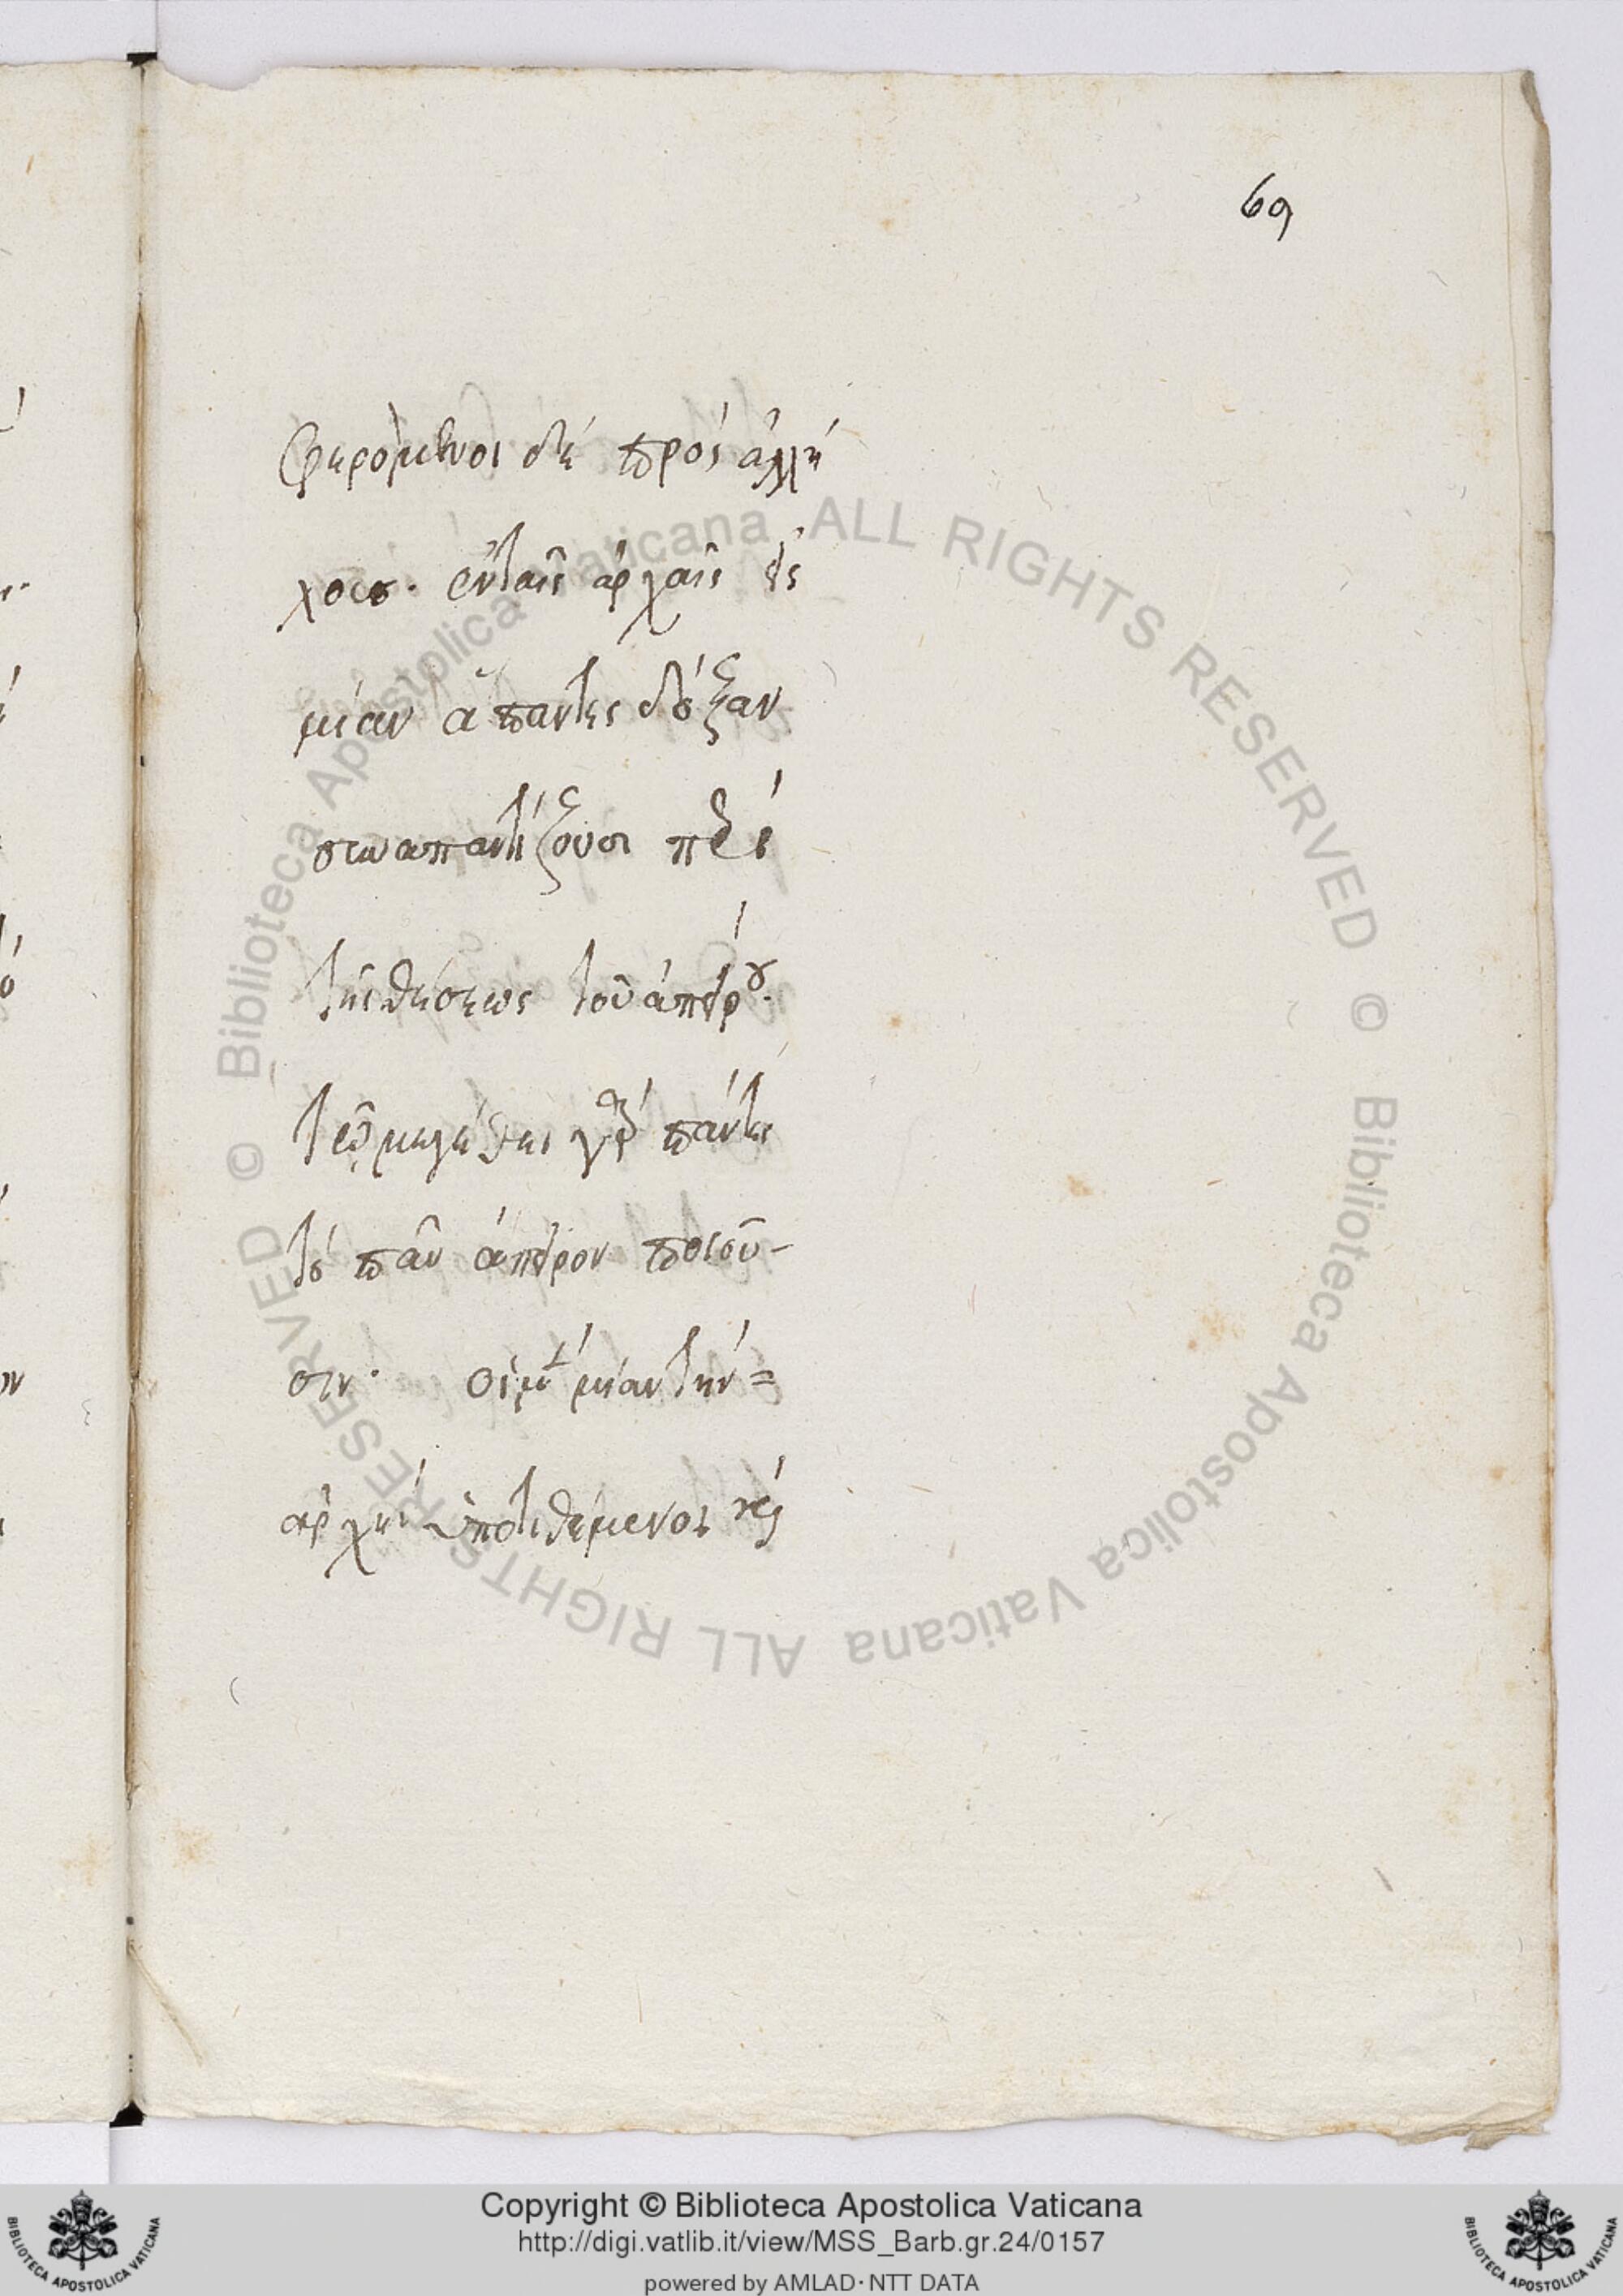 69
φερόμενοι δὲ πρὸς ἀλλή
λους. ἐν ταῖς ἀρχαῖς εἰς
μίαν ἅπαντες δόξαν
συναπαρτίζουσι περὶ
τῆς θέσεως τοῦ ἀπείρου.
τῷ μεγέθει γὰρ πάντες
τὸ πᾶν ἄπειρον ποιοῦ-
σιν. οἱ μὲν μίαν τὴν=
ἀρχὴν ὑποτιθέμενοι
Copyright © Biblioteca Apostolica Vaticana
http://digi.vatlib.it/view/MSS_Barb.gr.24/0157
powered by AMLAD·NTT DATA
© Biblioteca Apostolica Vaticana ALL RIGHTS RESERVED © Biblioteca Apostolica Vaticana ALL RIGHTS RESERVED
BIBLIOTECA APOSTOLICA VATICANA
BIBLIOTECA APOSTOLICA VATICANA